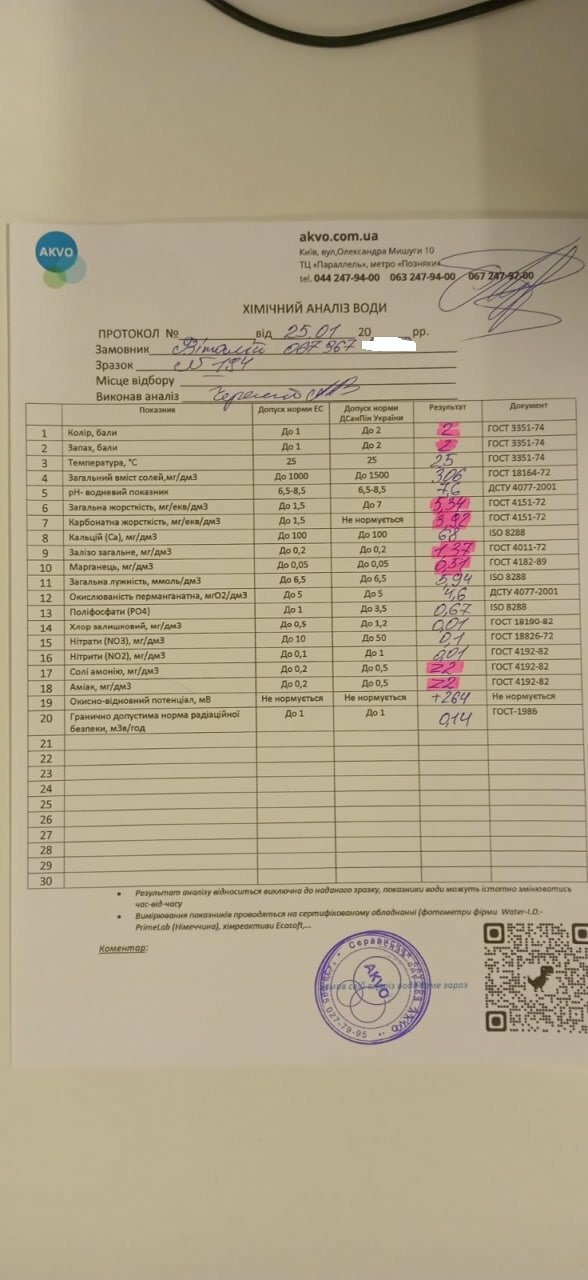 AKVO
akvo.com.ua
Київ, вул,Олександра Мишуги 10
ТЦ «Параллель», метро «Позняки»
tel. 044 247-94-00 063 247-94-00 067 247-92-00
ХІМІЧНИЙ АНАЛІЗ ВОДИ
ПРОТОКОЛ № від 25.01 20 рр.
Замовник Віталій 067 967
Зразок N 194
Місце відбору
Виконав аналіз
Показник Допуск норми ЕС Допуск норми ДСанПін України Результат Документ
1 Колір, бали До 1 До 2 2 ГОСТ 3351-74
2 Запах, бали До 1 До 2 2 ГОСТ 3351-74
3 Температура, °С 25 25 25 ГОСТ 3351-74
4 Загальний вміст солей,мг/дм3 До 1000 До 1500 306 ГОСТ 18164-72
5 рН- водневий показник 6,5-8,5 6,5-8,5 7,6 ДСТУ 4077-2001
6 Загальна жорсткість, мг/екв/дм3 До 1,5 До 7 5,34 ГОСТ 4151-72
7 Карбонатна жорсткість, мг/екв/дм3 До 1,5 Не нормується 3,92 ГОСТ 4151-72
8 Кальцій (Са), мг/дм3 До 100 До 100 68 ISO 8288
9 Залізо загальне, мг/дм3 До 0,2 До 0,2 1,37 ГОСТ 4011-72
10 Марганець, мг/дм3 До 0,05 До 0,05 0,51 ГОСТ 4182-89
11 Загальна лужність, ммоль/дм3 До 6,5 До 6,5 5,94 ISO 8288
12 Окислюваність перманганатна, мгО2/дм3 До 5 До 5 4,6 ДСТУ 4077-2001
13 Поліфосфати (РО4) До 1 До 3,5 0,67 ISO 8288
14 Хлор залишковий, мг/дм3 До 0,5 До 1,2 0,01 ГОСТ 18190-82
15 Нітрати (NO3), мг/дм3 До 10 До 50 0,1 ГОСТ 18826-72
16 Нітрити (NO2), мг/дм3 До 0,1 До 1 0,01 ГОСТ 4192-82
17 Солі амонію, мг/дм3 До 0,2 До 0,5 >2 ГОСТ 4192-82
18 Аміак, мг/дм3 До 0,2 До 0,5 >2 ГОСТ 4192-82
19 Окисно-відновний потенціал, мВ Не нормується Не нормується +264 Не нормується
20 Гранично допустима норма радіаційної безпеки, мЗв/год До 1 До 1 0,14 ГОСТ-1986
21
22
23
24
25
26
27
28
29
30
• Результат аналізу відноситься виключно до наданого зразку, показники води можуть істотно змінюватись
час-від-часу
• Вимірювання показників проводяться на сертифікованому обладнанні (фотометри фірми Water-I.D.-
PrimeLab (Німеччина), хімреактиви Ecosoft,...
Коментар:
AKVO
027-79-95